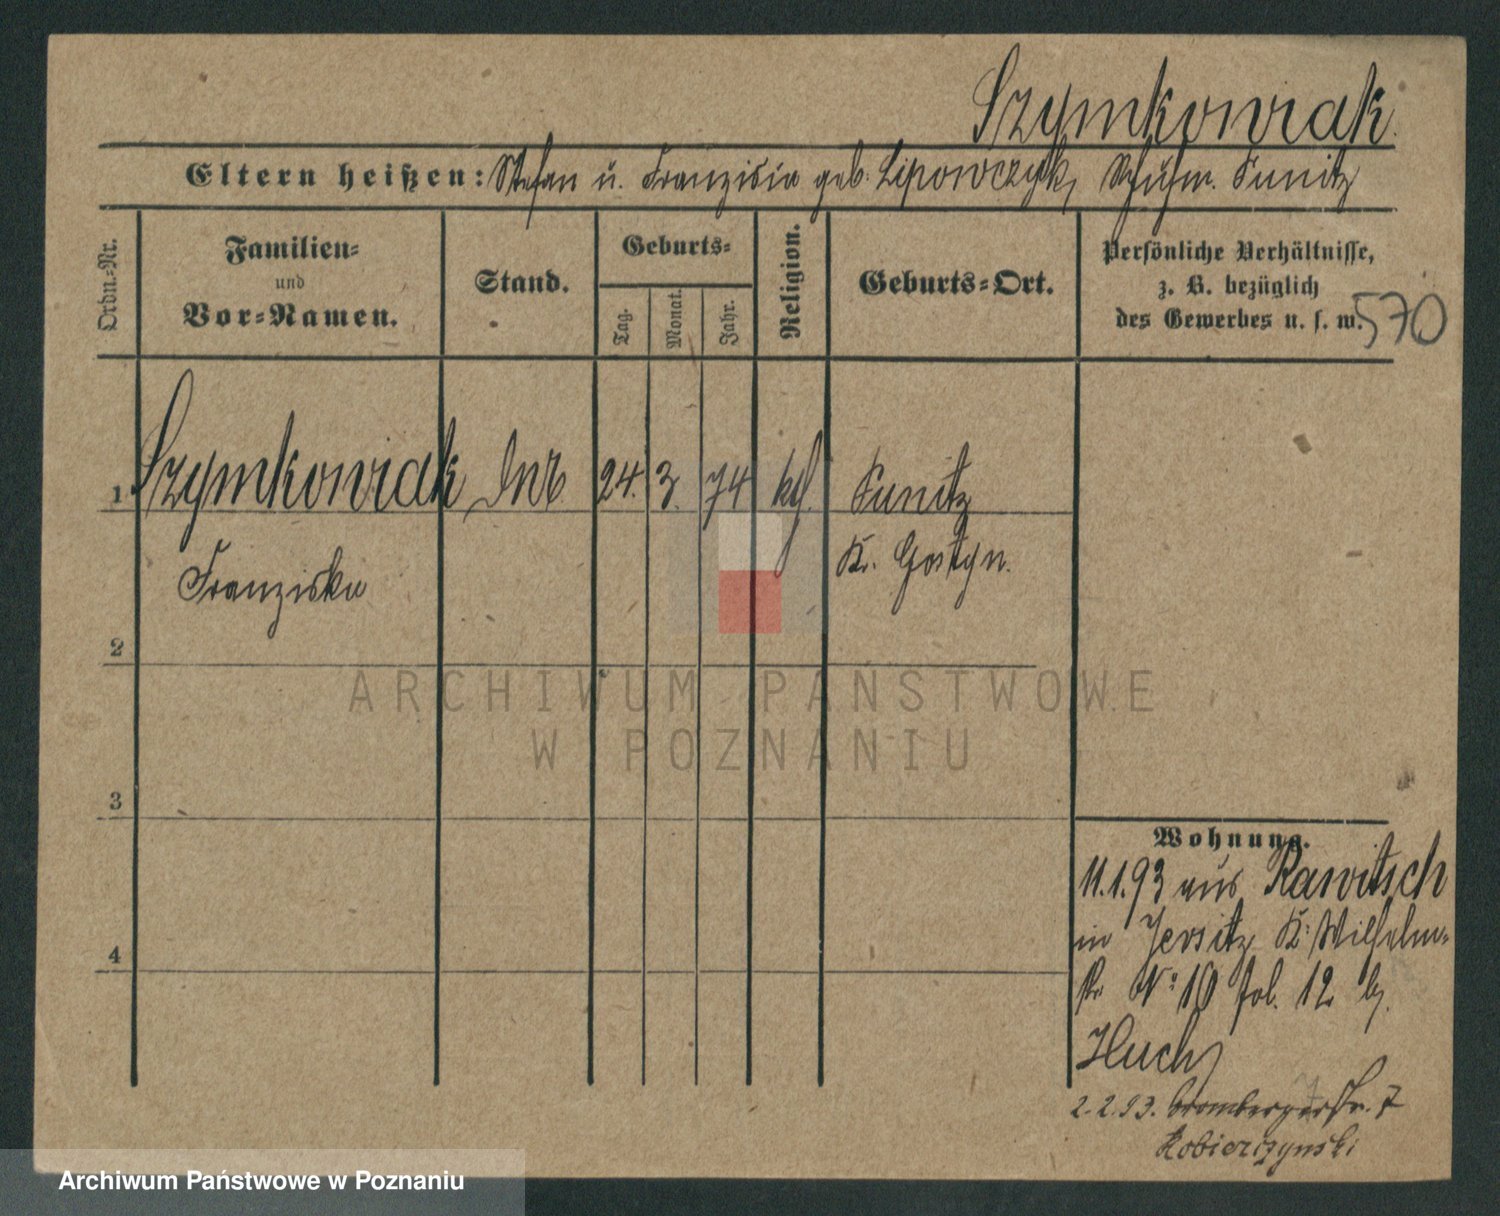 Szymkowiak.
Eltern heißen: Stefan u. Franziska geb. Lipowczyk, Punitz
Ordn.-Nr.
Familien-
und
Vor-Namen.
Stand.
Geburts-
Tag.
Monat.
Jahr.
Religion.
Geburts-Ort.
Persönliche Verhältnisse,
z. B. bezüglich
des Gewerbes u. s. w.
570
1 Szymkowiak 24. 3. 74 kth. Punitz
Franziska Kr. Gostyn.
2
3
4
ARCHIWUM PAŃSTWOWE
W POZNANIU
Wohnung.
11.1.93 aus Rawitsch
in Jersitz K. Wilhelm-
str No 10 12 b.
Huch
2.2.93. Brombergerstr. 7
Kobierczynski
Archiwum Państwowe w Poznaniu